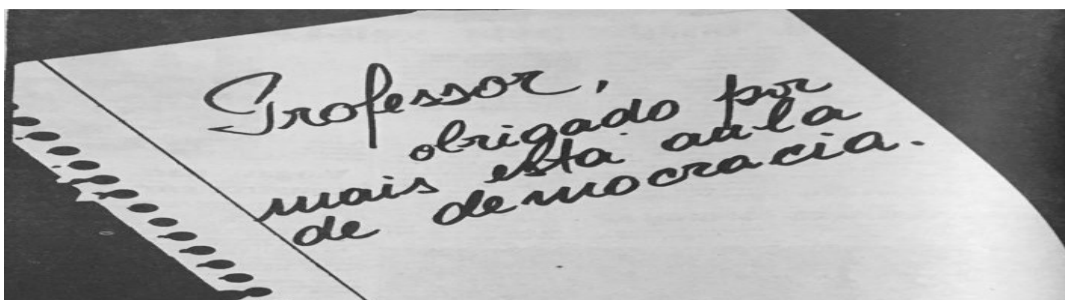 Professor,
obrigado por
mais esta aula
de democracia.